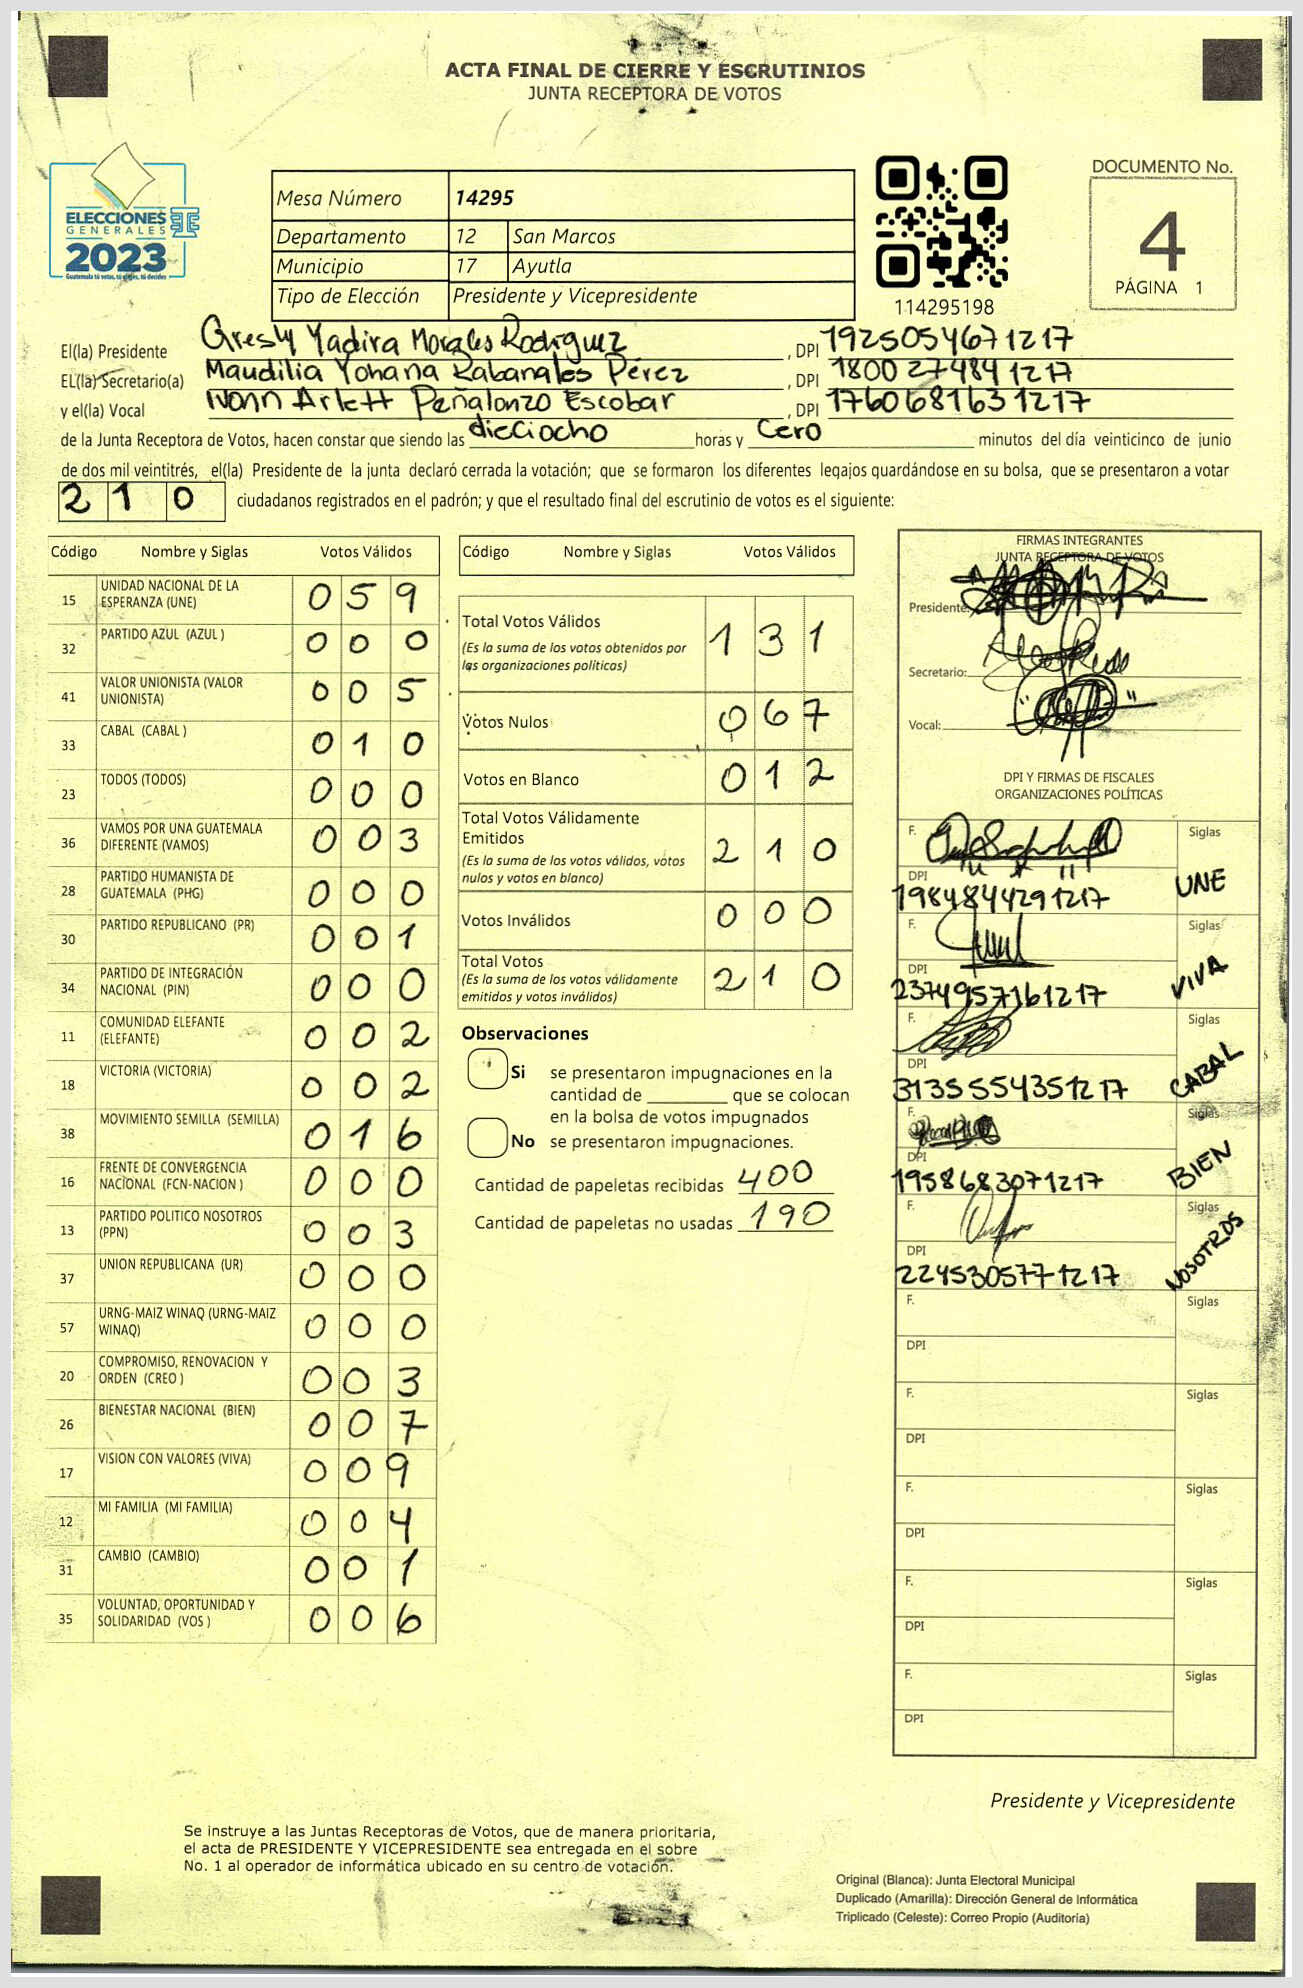 ACTA FINAL DE CIERRE Y ESCRUTINIOS
JUNTA RECEPTORA DE VOTOS
ELECCIONES
GENERALES
2023
Guatemala tú votas, tú eliges, tú decides
Mesa Número 14295
Departamento 12 San Marcos
Municipio 17 Ayutla
Tipo de Elección Presidente y Vicepresidente
114295198
DOCUMENTO No.
4
PÁGINA 1
El(la) Presidente Gresly Yadira Morales Rodriguez, DPI 1925054671217
EL(la) Secretario(a) Maudilia Yohana Rabanales Pérez, DPI 1800274841217
y el(la) Vocal Ivonn Arlett Peñalonzo Escobar, DPI 1760681631217
de la Junta Receptora de Votos, hacen constar que siendo las dieciocho horas y cero minutos del día veinticinco de junio
de dos mil veintitrés, el(la) Presidente de la junta declaró cerrada la votación; que se formaron los diferentes legajos guardándose en su bolsa, que se presentaron a votar
210 ciudadanos registrados en el padrón; y que el resultado final del escrutinio de votos es el siguiente:
Código Nombre y Siglas Votos Válidos
15 UNIDAD NACIONAL DE LA ESPERANZA (UNE) 059
32 PARTIDO AZUL (AZUL ) 000
41 VALOR UNIONISTA (VALOR UNIONISTA) 005
33 CABAL (CABAL ) 010
23 TODOS (TODOS) 000
36 VAMOS POR UNA GUATEMALA DIFERENTE (VAMOS) 003
28 PARTIDO HUMANISTA DE GUATEMALA (PHG) 000
30 PARTIDO REPUBLICANO (PR) 001
34 PARTIDO DE INTEGRACIÓN NACIONAL (PIN) 000
11 COMUNIDAD ELEFANTE (ELEFANTE) 002
18 VICTORIA (VICTORIA) 002
38 MOVIMIENTO SEMILLA (SEMILLA) 016
16 FRENTE DE CONVERGENCIA NACIONAL (FCN-NACION ) 000
13 PARTIDO POLITICO NOSOTROS (PPN) 003
37 UNION REPUBLICANA (UR) 000
57 URNG-MAIZ WINAQ (URNG-MAIZ WINAQ) 000
20 COMPROMISO, RENOVACION Y ORDEN (CREO ) 003
26 BIENESTAR NACIONAL (BIEN) 007
17 VISION CON VALORES (VIVA) 009
12 MI FAMILIA (MI FAMILIA) 004
31 CAMBIO (CAMBIO) 001
35 VOLUNTAD, OPORTUNIDAD Y SOLIDARIDAD (VOS ) 006
Código Nombre y Siglas Votos Válidos
Total Votos Válidos 131
(Es la suma de los votos obtenidos por
las organizaciones políticas)
Votos Nulos 067
Votos en Blanco 012
Total Votos Válidamente
Emitidos 210
(Es la suma de los votos válidos, votos
nulos y votos en blanco)
Votos Inválidos 000
Total Votos 210
(Es la suma de los votos válidamente
emitidos y votos inválidos)
Observaciones
Si se presentaron impugnaciones en la
cantidad de ________ que se colocan
en la bolsa de votos impugnados
No se presentaron impugnaciones.
Cantidad de papeletas recibidas 400
Cantidad de papeletas no usadas 190
FIRMAS INTEGRANTES
JUNTA RECEPTORA DE VOTOS
Presidente:
Secretario:
Vocal:
DPI Y FIRMAS DE FISCALES
ORGANIZACIONES POLÍTICAS
F. Siglas
DPI
1984844291217 UNE
F. Siglas
DPI
2374957161217 VIVA
F. Siglas
DPI
3135554351217 CABAL
F. Siglas
DPI
1958683071217 BIEN
F. Siglas
DPI
2245305771217 NOSOTROS
F. Siglas
DPI
F. Siglas
DPI
F. Siglas
DPI
F. Siglas
DPI
F. Siglas
DPI
Presidente y Vicepresidente
Se instruye a las Juntas Receptoras de Votos, que de manera prioritaria,
el acta de PRESIDENTE Y VICEPRESIDENTE sea entregada en el sobre
No. 1 al operador de informática ubicado en su centro de votación.
Original (Blanca): Junta Electoral Municipal
Duplicado (Amarilla): Dirección General de Informática
Triplicado (Celeste): Correo Propio (Auditoría)